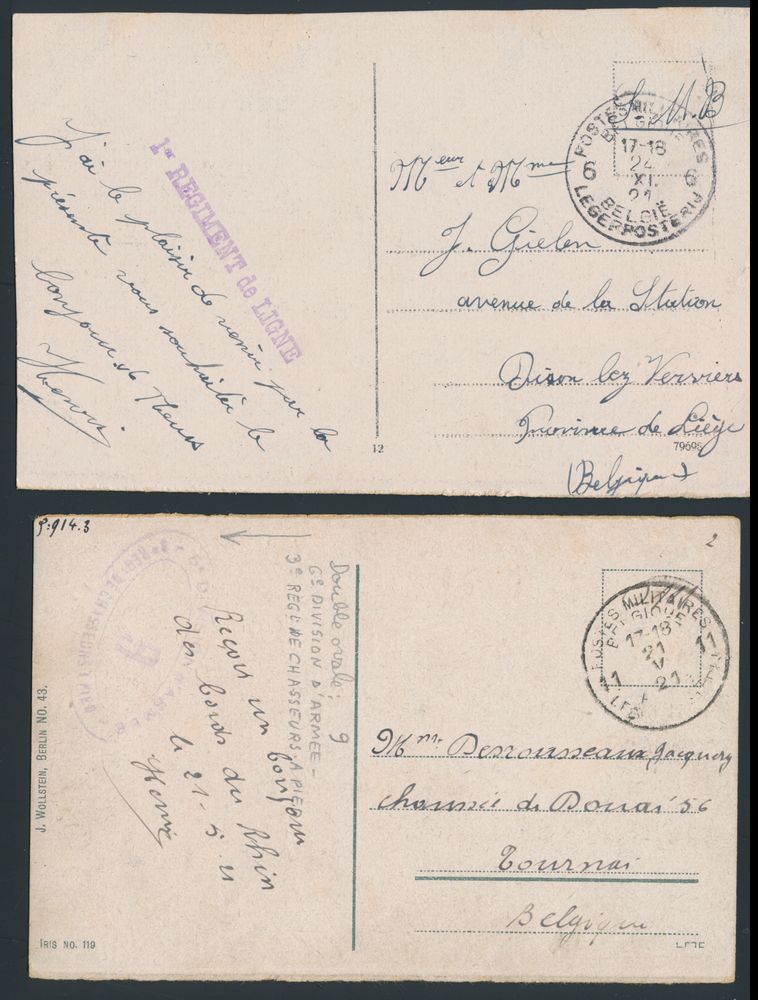 J'ai le plaisir de venir par la
présente vous souhaiter le
bonjour de
Henri
1er REGIMENT de LIGNE
S. M. B
POSTES MILITAIRES
BELGIQUE
6 6
17-18
24
XI
21
BELGIË
LEGERPOSTERIJ
Meur et Mme
J. Gielen
avenue de la Station
Dison lez Verviers
Province de Liège
(Belgique)
12
7969S
P:914.3
2
Double ovale; 9
6e DIVISION D'ARMEE -
3e REGt DE CHASSEURS A PIED
9
Reçois un bonjour
des bords du Rhin
le 21-5-21
Henri
J. WOLLSTEIN, BERLIN NO. 43.
IRIS NO. 119
POSTES MILITAIRES
BELGIQUE
11 11
17-18
21
V
21
Mme Desrousseaux Jacquery
Chaussée de Douai 56
Tournai
Belgique